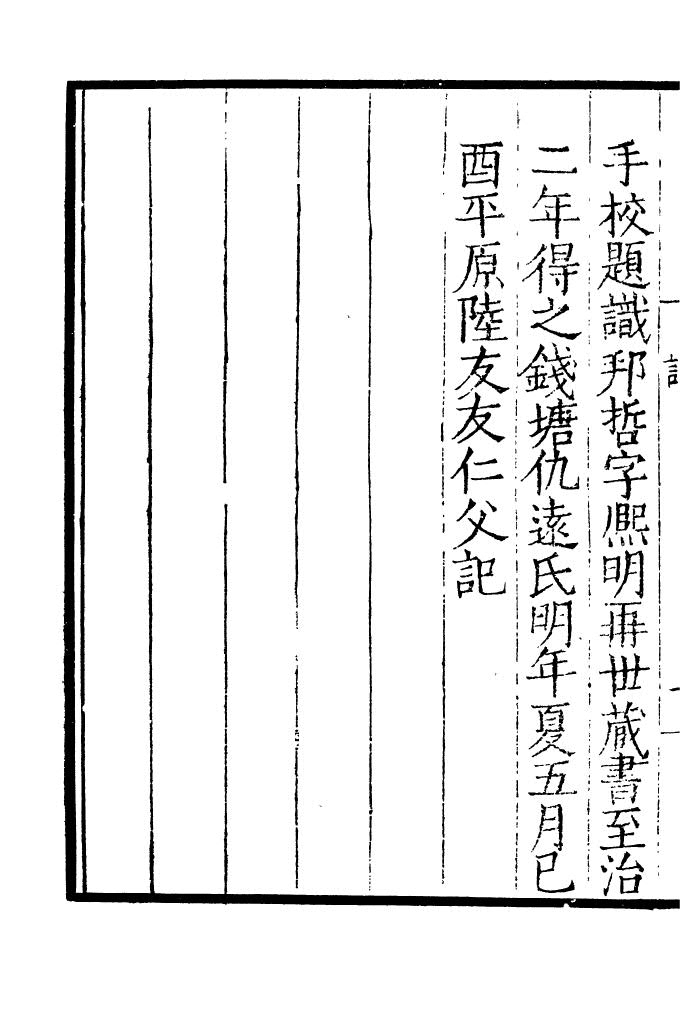 手校題識邦哲字熈明再世蔵書至治
二年得之錢塘仇遠氏明年夏五月已
酉平原陸友友仁父記